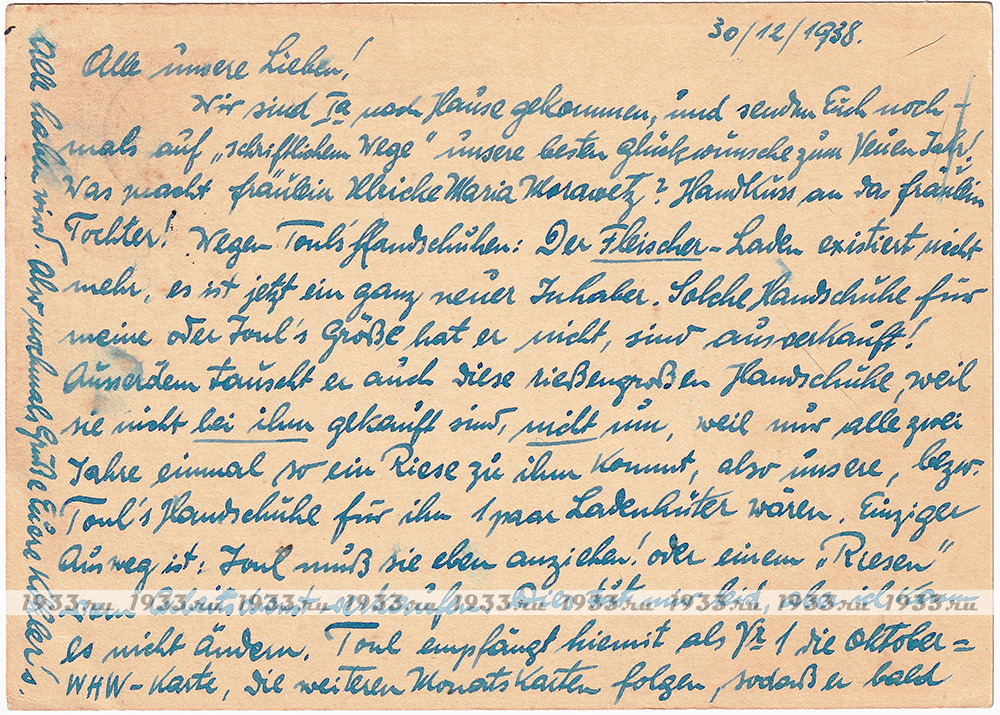 30/12/1938.
Alle unsere Lieben!
Wir sind Ia nach Hause gekommen, und senden Euch noch-
mals auf „schriftlichem Wege" unsere besten Glückwünsche zum Neuen Jahr!
Was macht Fräulein Ulricke Maria Morawetz? Handkuss an das Fräulein
Tochter! Wegen Toul's Handschuhen: Der Fleischer-Laden existiert nicht
mehr, es ist jetzt ein ganz neuer Inhaber. Solche Handschuhe für
meine oder Toul's Größe hat er nicht, sind ausverkauft!
Ausserdem tauscht er auch diese rießengroßen Handschuhe, weil
sie nicht bei ihm gekauft sind, nicht um, weil nur alle zwei
Jahre einmal so ein Riese zu ihm kommt, also unsere, bezw.
Toul's Handschuhe für ihn 1 paar Ladenhüter wären. Einziger
Ausweg ist: Toul muß sie eben anziehen! oder einem „Riesen"
vom tut mir leid, ich kann
es nicht ändern. Toul empfängt hiemit als Nr 1 die Oktober=
WHW-Karte, die weiteren Monatskarten folgen, sodaß er bald
alle haben wird. Also, nochmals Grüße Euere Köhler's.
1933.ru 1933.ru 1933.ru 1933.ru 1933.ru 1933.ru 1933.ru 1933.ru 1933.ru 1933.ru